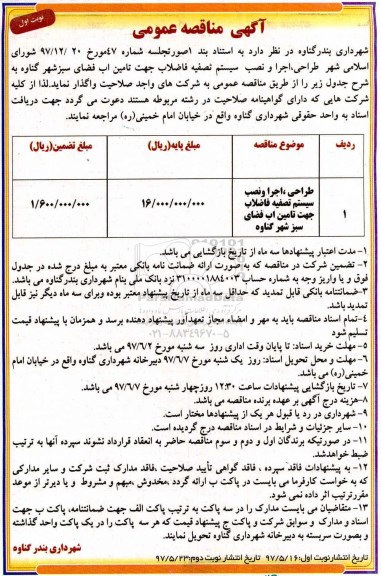 نوبت اول
آگهی مناقصه عمومی
شهرداری بندرگناوه در نظر دارد به استناد بند ۱صورتجلسه شماره ۴۷مورخ ۲۰ /۹۷/۱۲ شورای
اسلامی شهر طراحی،اجرا و نصب سیستم تصفیه فاضلاب جهت تامین اب فضای سبزشهر گناوه به
شرح جدول زیر را از طریق مناقصه عمومی به شرکت های واجد صلاحیت واگذار نماید.لذا از کلیه
شرکت هایی که دارای گواهینامه صلاحیت در رشته مربوطه هستند دعوت می گردد جهت دریافت
اسناد به واحد حقوقی شهرداری گناوه واقع در خیابان امام خمینی(ره) مراجعه نمایند.
ردیف موضوع مناقصه مبلغ پایه(ریال) مبلغ تضمین(ریال)
۱ طراحی ،اجرا ونصب سیستم تصفیه فاضلاب جهت تامین اب فضای سبز شهر گناوه ۱۶/۰۰۰/۰۰۰/۰۰۰ ۱/۶۰۰/۰۰۰/۰۰۰
۱- مدت اعتبار پیشنهادها سه ماه از تاریخ بازگشایی می باشد.
۲- تضمین شرکت در مناقصه که به صورت ارائه ضمانت نامه بانکی معتبر به مبلغ درج شده در جدول
فوق و یا واریز وجه به شماره حساب ۳۱۰۰۰۰۱۸۸۴۰۰۳ نزد بانک ملی بنام شهرداری بندرگناوه می باشد.
۳-ضمانتنامه بانکی قابل تمدید که حداقل سه ماه از تاریخ پیشنهاد معتبر بوده وبرای سه ماه دیگر نیز قابل
تمدید باشد.
۴-تمام اسناد مناقصه باید به مهر و امضاء مجاز تعهدآور پیشنهاد دهنده برسد و همزمان با پیشنهاد قیمت
تسلیم شود
۵- مهلت خرید اسناد: تا پایان وقت اداری روز سه شنبه مورخ ۹۷/۶/۲ می باشد.
۶- مهلت و محل تحویل اسناد: روز یک شنبه مورخ ۹۷/۶/۷ دبیرخانه شهرداری گناوه واقع در خیابان امام
خمینی(ره) می باشد.
۷- تاریخ بازگشایی پیشنهادات ساعت ۱۲:۳۰ روزچهار شنبه مورخ ۹۷/۶/۷ می باشد.
۸-هزینه درج آگهی بر عهده برنده مناقصه می باشد.
۹-شهرداری در رد یا قبول هر یک از پیشنهادها مختار است.
۱۰- سایر جزئیات و شرایط در اسناد مناقصه درج گردیده است.
۱۱- در صورتیکه برندگان اول و دوم و سوم مناقصه حاضر به انعقاد قرارداد نشوند سپرده آنها به ترتیب
ضبط خواهدشد.
۱۲- به پیشنهادات فاقد سپرده ، فاقد گواهی تأیید صلاحیت ،فاقد مدارک ثبت شرکت و سایر مدارکی
که به خواست کارفرما می بایست در پاکت ب ارائه گردد ،مخدوش ،مبهم و مشروط و یا دیرتر از موعد
مقررترتیب اثر داده نمی شود.
۱۳- متقاضیان می بایست مدارک را در سه پاکت به ترتیب پاکت الف جهت ضمانتنامه، پاکت ب جهت
اسناد و مدارک و سوابق شرکت و پاکت ج پیشنهاد قیمت که هر سه پاکت را در یک پاکت واحد گذاشته
و بصورت سربسته به دبیرخانه شهرداری گناوه تحویل نمایند.
شهرداری بندر گناوه
تاریخ انتشارنوبت اول: ۹۷/۵/۱۶ تاریخ انتشار نوبت دوم:۹۷/۵/۲۳